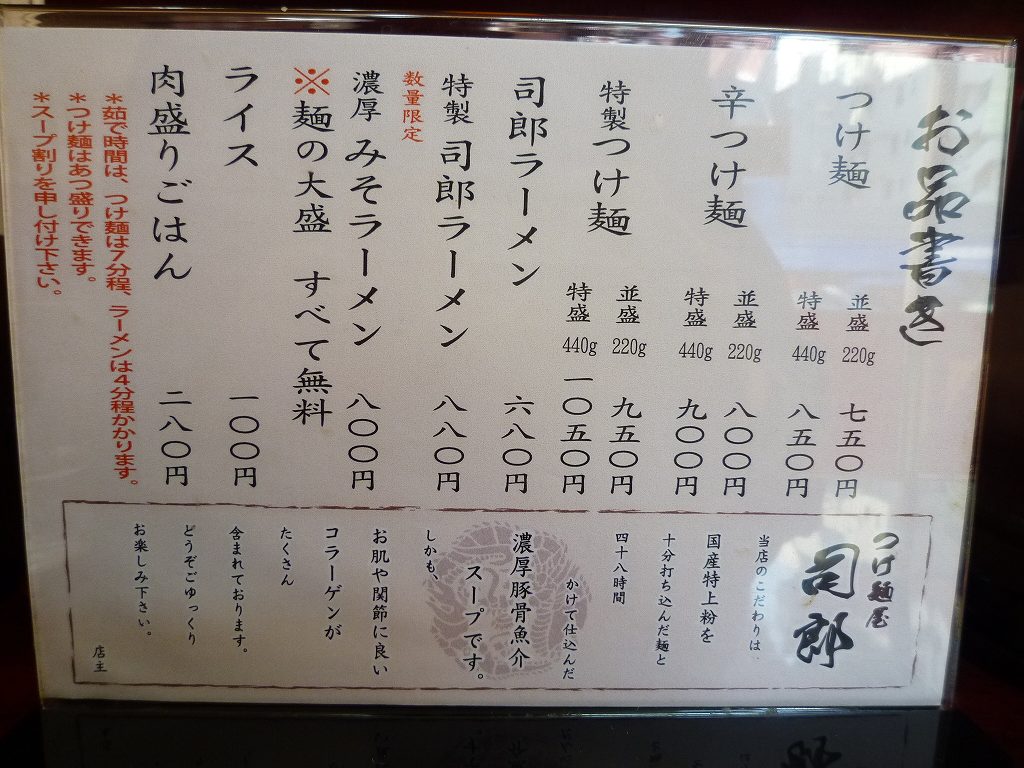 お品書き
つけ麺
並盛 220g 七五〇円
特盛 440g 八五〇円
辛つけ麺
並盛 220g 八〇〇円
特盛 440g 九〇〇円
特製つけ麺
並盛 220g 九五〇円
特盛 440g 一〇五〇円
司郎ラーメン 六八〇円
特製 司郎ラーメン 八八〇円
数量限定
濃厚 みそラーメン 八〇〇円
※麺の大盛 すべて無料
ライス 一〇〇円
肉盛りごはん 二八〇円
*茹で時間は、つけ麺は7分程、ラーメンは4分程かかります。
*つけ麺はあつ盛りできます。
*スープ割りを申し付け下さい。
つけ麺屋
司郎
当店のこだわりは、
国産特上粉を
十分打ち込んだ麺と
四十八時間
かけて仕込んだ
濃厚豚骨魚介
スープです。
しかも、
お肌や関節に良い
コラーゲンが
たくさん
含まれております。
どうぞごゆっくり
お楽しみ下さい。
店主